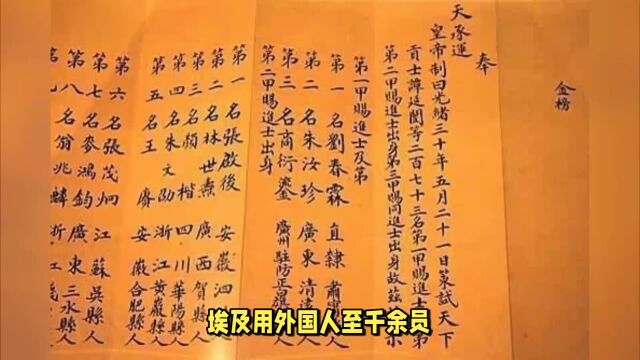 金榜
奉
天承運
皇帝制曰光緒三十年五月二十一日策試天下
貢士譚延闓等二百七十三名第一甲賜進士
第二甲賜進士出身第三甲賜同進士出身故茲
第一甲賜進士及第
第一名劉春霖 直隸肅
第二名朱汝珍 廣東清
第三名商衍鎏 廣州駐防正
第二甲賜進士出身
第一名張啟後 安徽泗
第二名林世燾 廣西賀縣
第三名顏楷 四川華陽縣人
第四名朱文劭 浙江黃巖縣人
第五名王賡 安徽合肥縣人
第六名張茂炯 江蘇吳縣人
第七名麥鴻鈞 廣東三水縣人
第八名翁兆麟 浙江
埃及用外国人至千余员